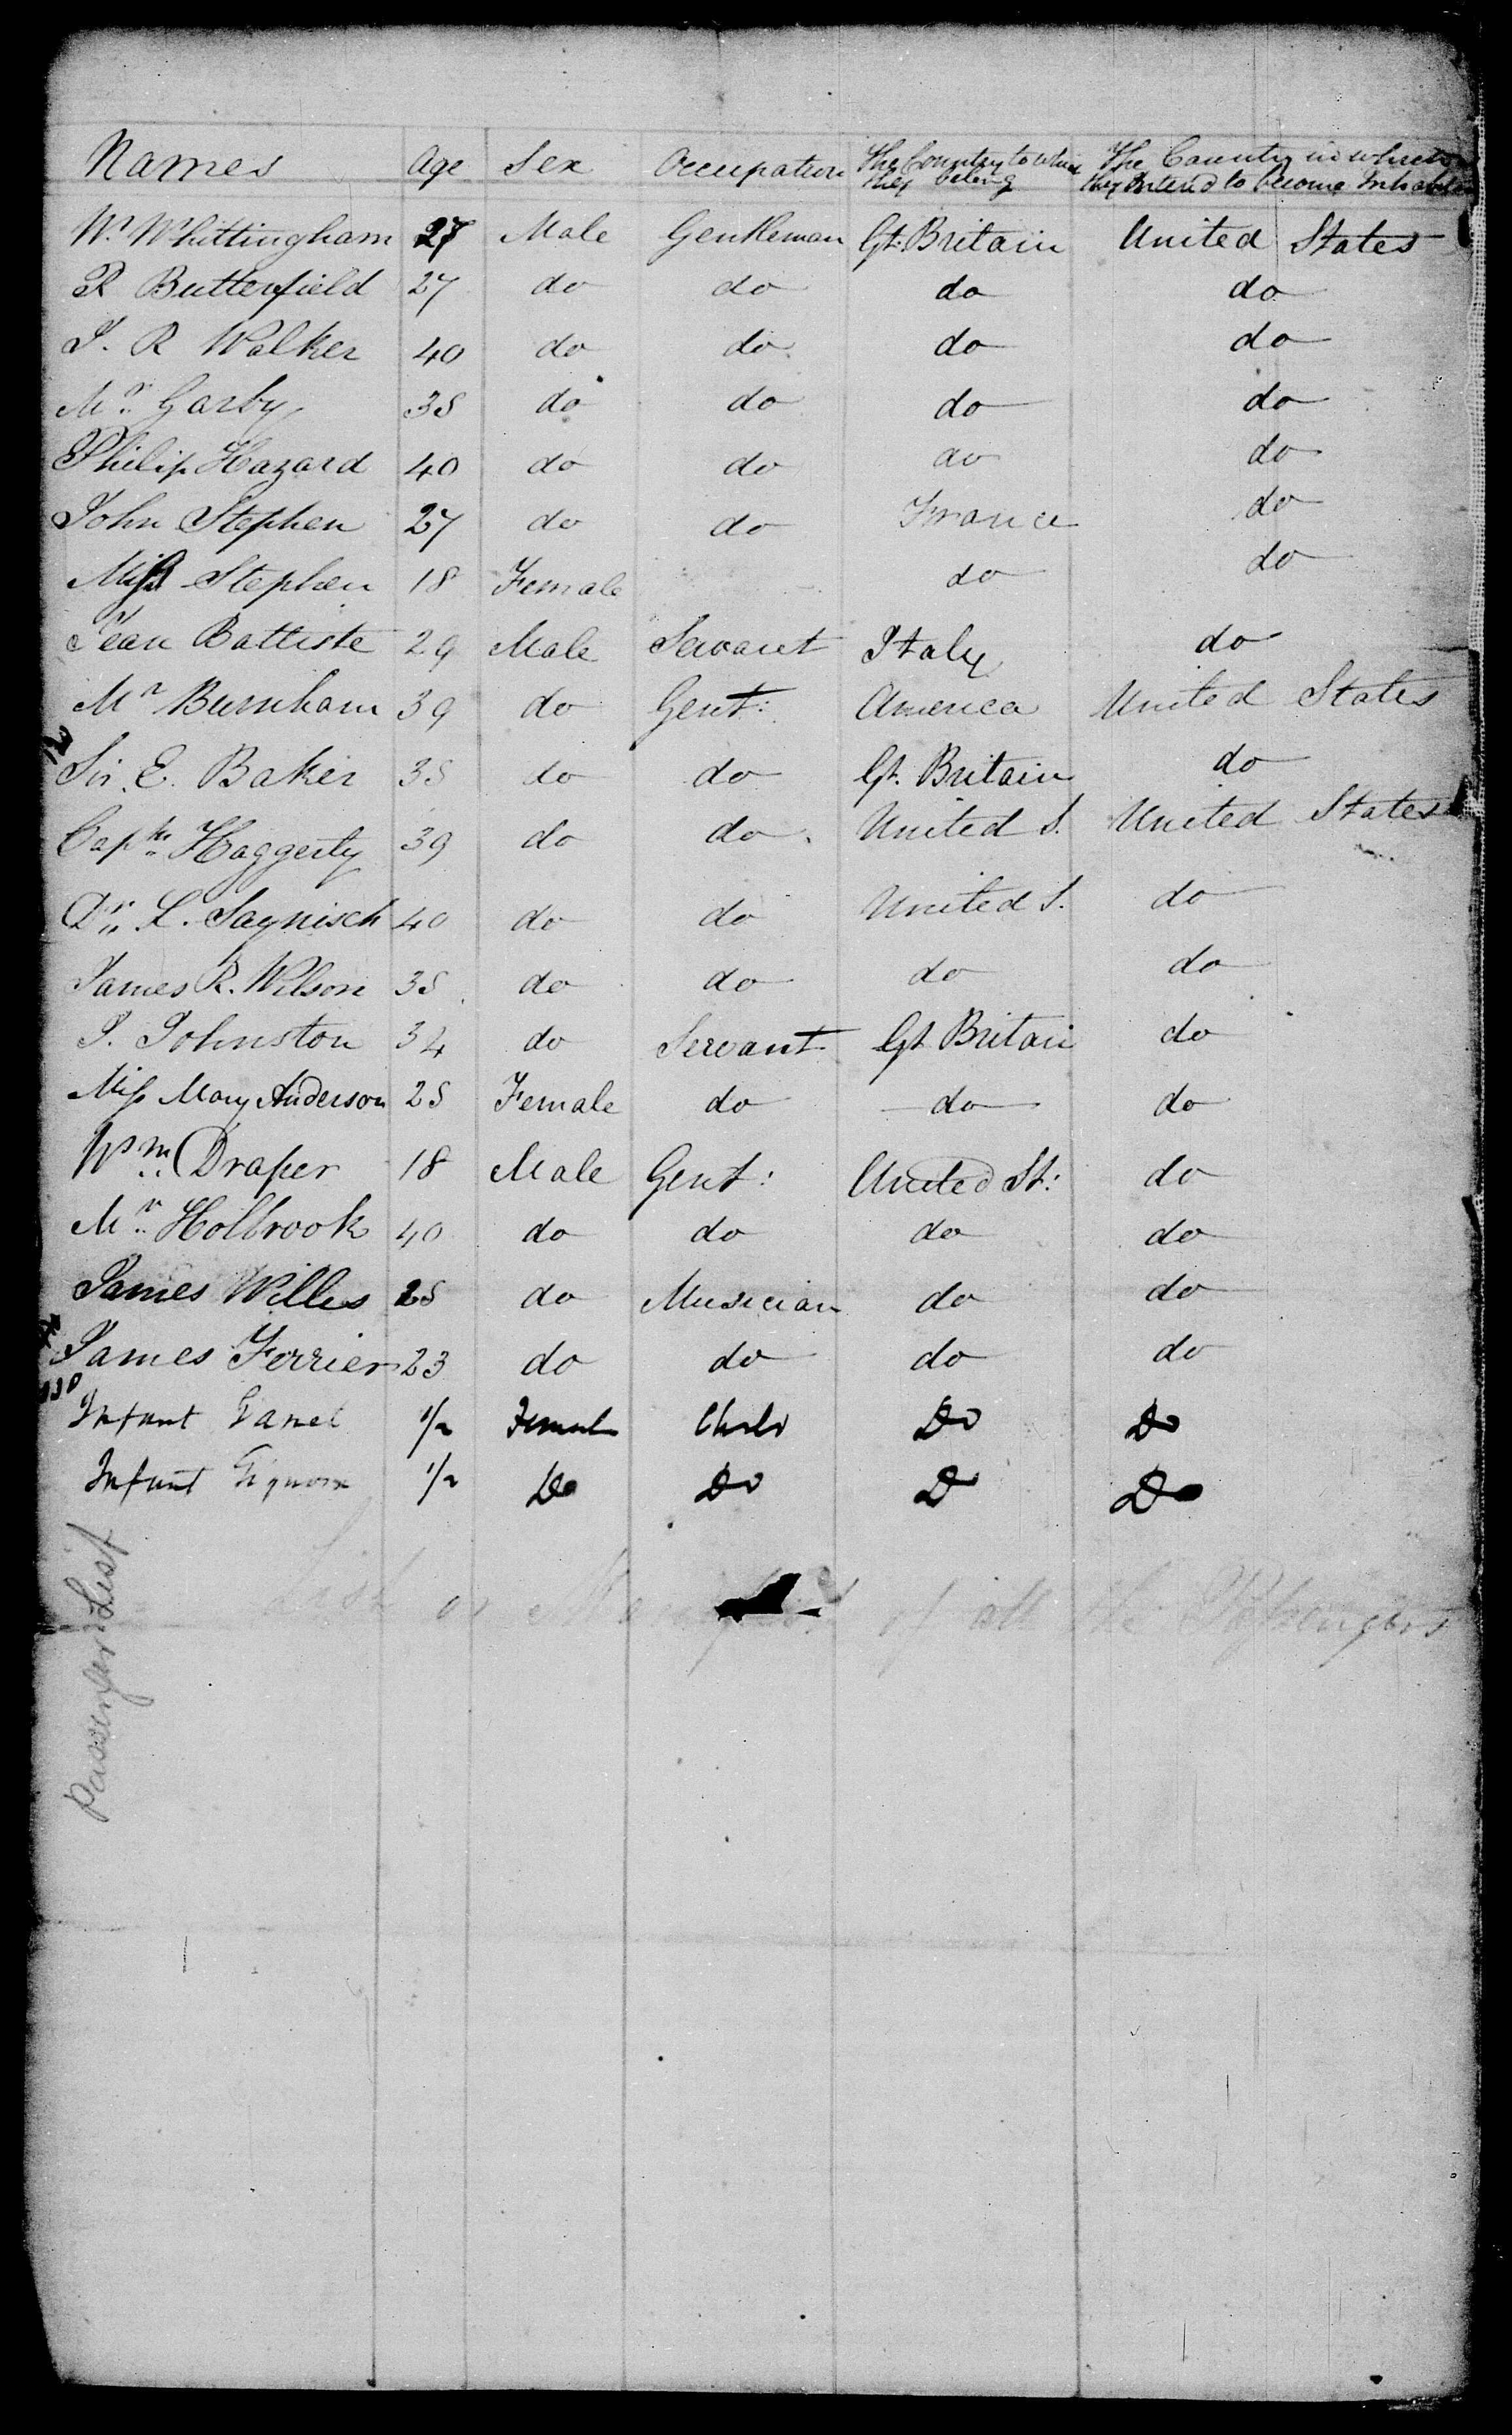 Names Age Sex Occupation The Country to which they belong The Country in which they Intend to become Inhabitants
W. Whittingham 27 Male Gentleman Gt. Britain United States
R Butterfield 27 do do do do
J. R Walker 40 do do do do
Mr. Garby 35 do do do do
Philip Hazard 40 do do do do
John Stephen 27 do do France do
Miss Stephen 18 Female do do
Jean Battiste 29 Male Servant Italy do
Mr Burnham 39 do Gent: America United States
Sir. E. Baker 35 do do Gt. Britain do
Haggerty 39 do do United S. United States
Dr. L. Saynisch 40 do do United S. do
James R. Wilson 35 do do do do
J. Johnston 34 do Servant Gt Britain do
Miss Mary Anderson 25 Female do do do
Wm. Draper 18 Male Gent: United St: do
Mr. Holbrook 40 do do do do
James Willis 25 do Musician do do
James Ferrier 23 do do do do
Infant 1/2 Female Child Do Do
Infant 1/2 Do Do Do Do
List or of all the Passengers
Passenger List